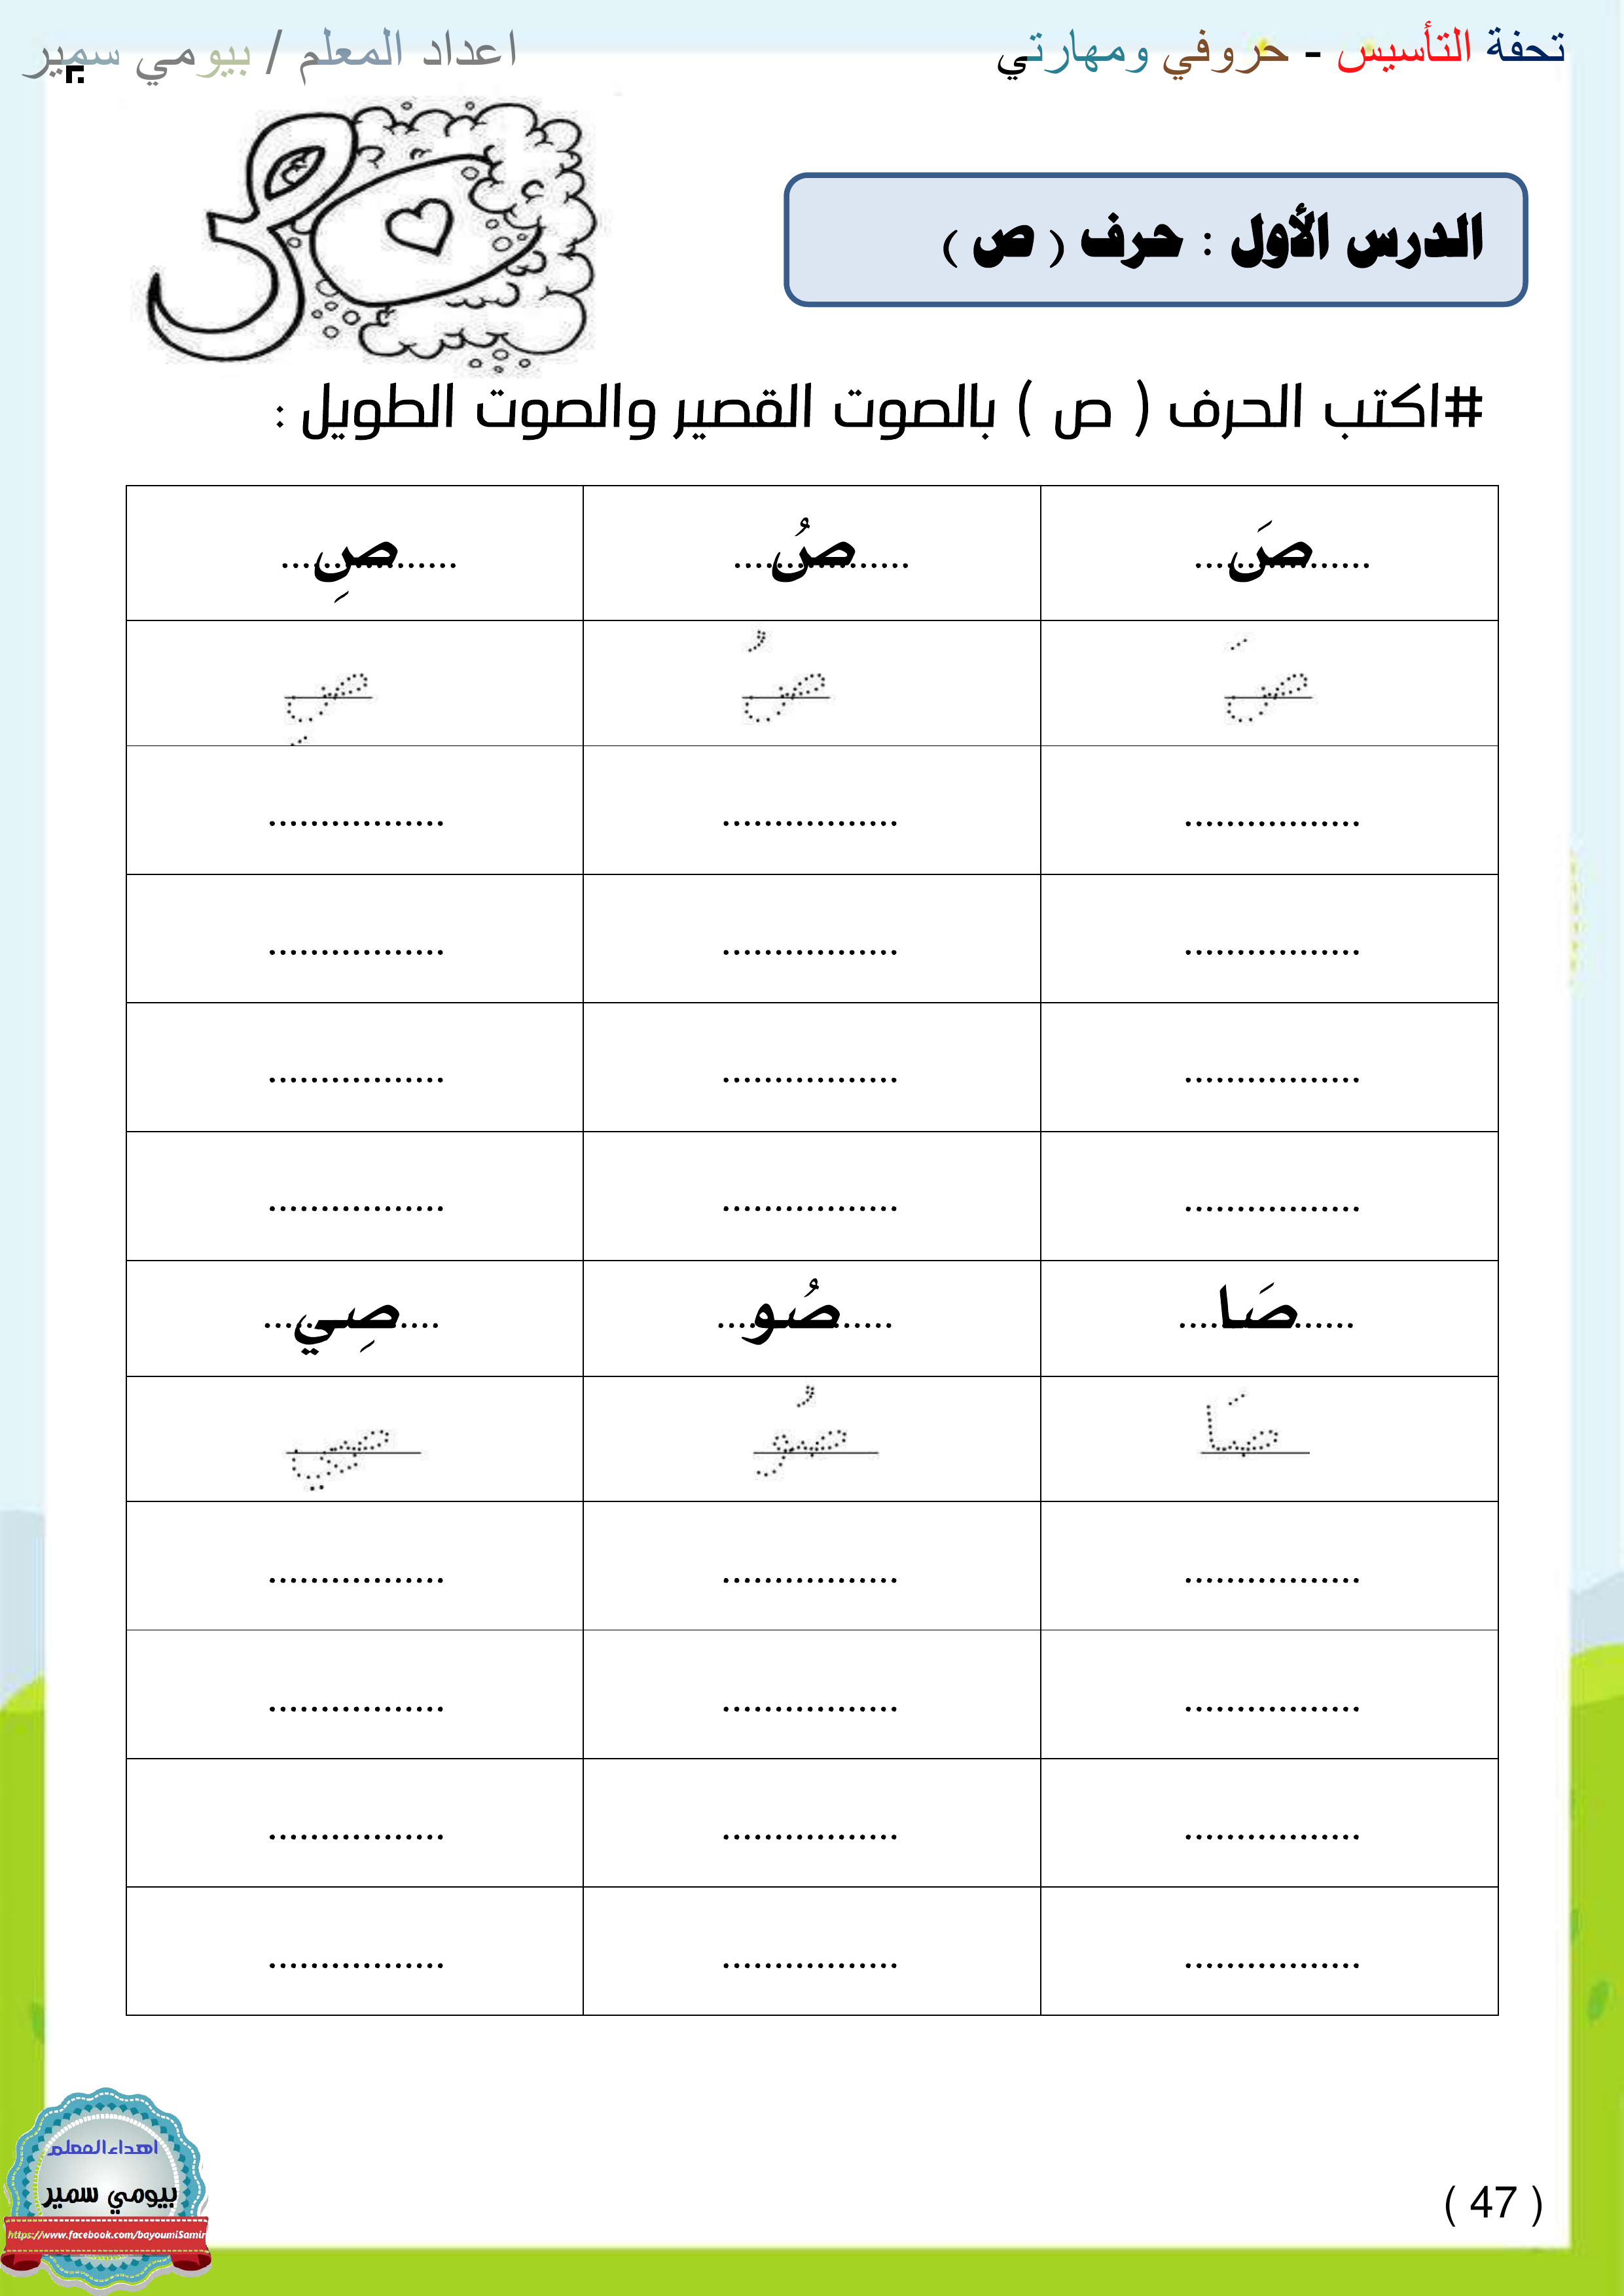 تحفة التأسيس - حروفي ومهارتي
اعداد المعلم / بيومي سمير
ص
الدرس الأول : حرف ( ص )
#اكتب الحرف ( ص ) بالصوت القصير والصوت الطويل :
صَ صُ صِ
صَ صُ صِ
................. ................. .................
................. ................. .................
................. ................. .................
................. ................. .................
صَا صُو صِي
صَا صُو صي
................. ................. .................
................. ................. .................
................. ................. .................
................. ................. .................
اهداء المعلم
بيومي سمير
https://www.facebook.com/bayoumiSamir
( 47 )